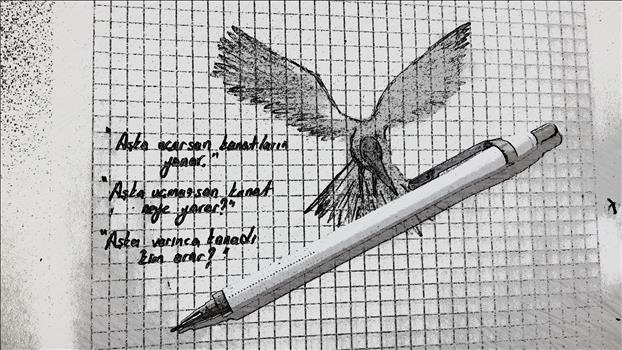 "Aşka uçarsan kanatların
yanar."
"Aşka uçmazsan kanat
neye yarar?"
"Aşka varınca kanadı
kim arar?"